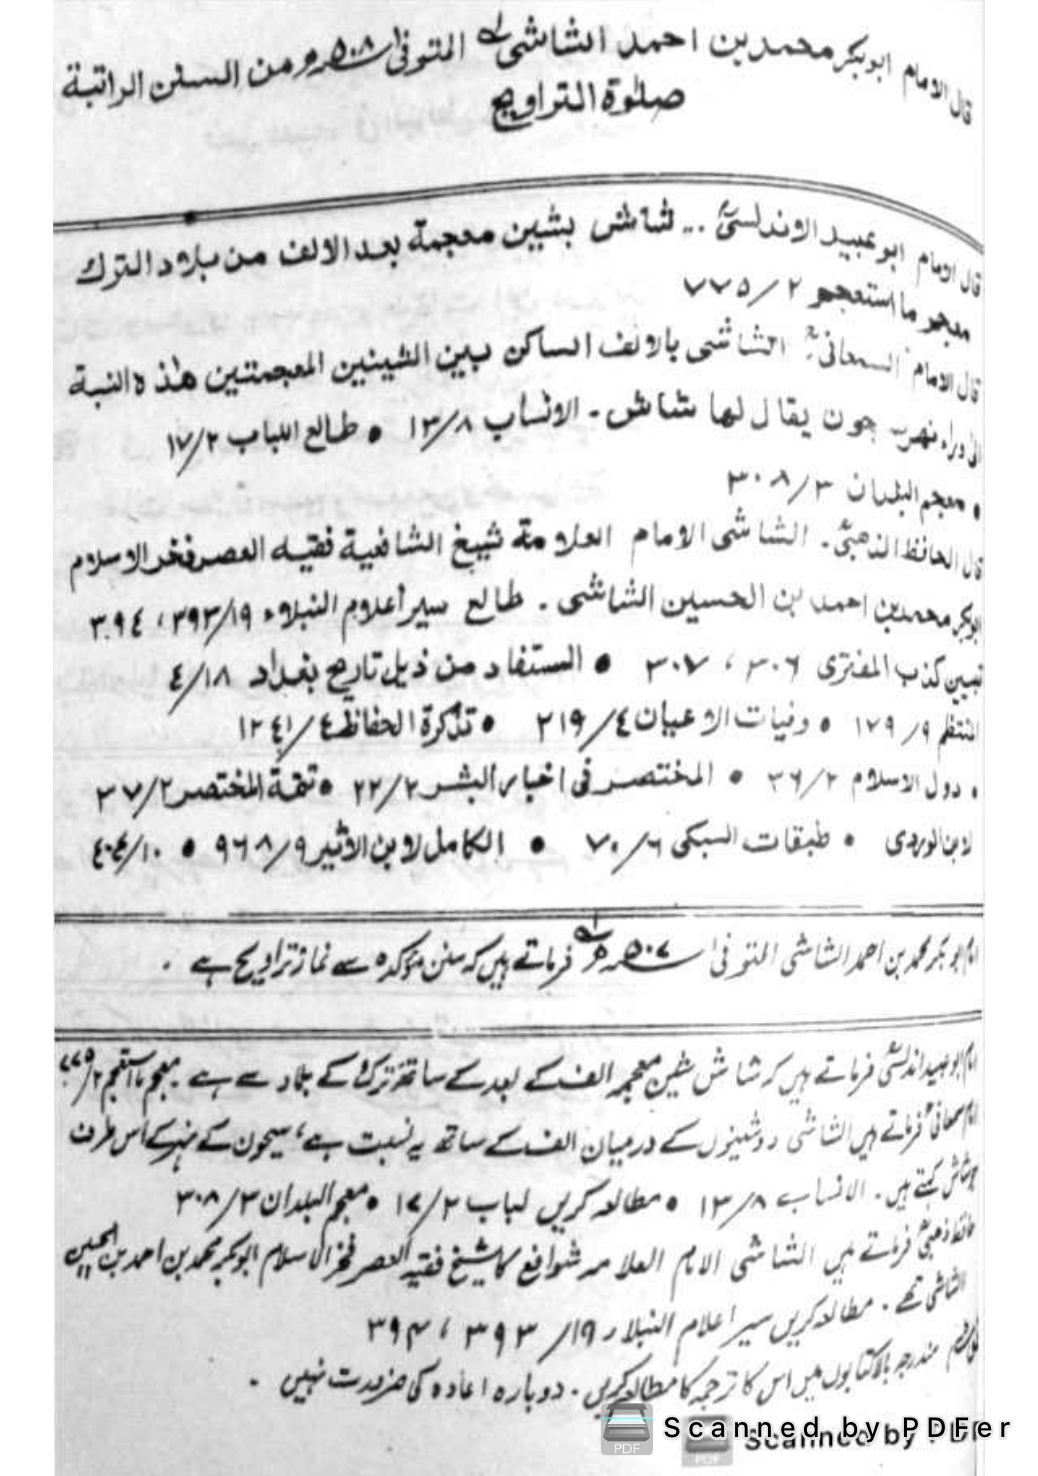 قال الامام ابوبكر محمد بن احمد الشاشی المتوفیٰ ۵۰۸ھ من السنن الراتبة
صلوٰة التراويح
قال الامام ابو عبيد الاندلسیؒ ... شاش بشين معجمة بعد الالف من بلاد الترك
معجم ما استعجم ۲/۷۷۵
قال الامام السمعانیؒ: الشاشی بالالف الساكن بين الشينين المعجمتين هٰذه النسبة
الیٰ وراء نهر سيحون يقال لها شاش۔ الانساب ۸/۱۳ • طالع اللباب ۲/۱۷
• معجم البلدان ۳/۳۰۸
قال الحافظ الذهبیؒ۔ الشاشی الامام العلامة شيخ الشافعية فقيه العصر فخر الاسلام
ابوبكر محمد بن احمد بن الحسين الشاشی۔ طالع سير أعلام النبلاء ۱۹/۳۹۳، ۳۹٤
تبيين كذب المفتری ۳۰۶، ۳۰۷ • المستفاد من ذيل تاريخ بغداد ۱۸/٤
المنتظم ۹/۱۷۹ • وفيات الاعيان ٤/۲۱۹ • تذكرة الحفاظ ٤/۱۲٤۱
• دول الاسلام ۲/۳۶ • المختصر فی اخبار البشر ۲/۲۲ • تتمة المختصر ۲/۳۷
لابن الوردی • طبقات السبكی ۶/۷۰ • الكامل لابن الاثير ۹/۹۶۸ •
امام ابوبکر محمد بن احمد الشاشی المتوفیٰ ۵۰۷ھ فرماتے ہیں کہ سنن مؤکدہ سے نماز تراویح ہے۔
امام ابو عبید اندلسیؒ فرماتے ہیں کہ شاش شین معجمہ الف کے بعد کے ساتھ ترک کے بلاد سے ہے۔ معجم ما استعجم ۲/۷۷۵
امام سمعانیؒ فرماتے ہیں الشاشی دو شینوں کے درمیان الف کے ساتھ یہ نسبت ہے، سیحون کے نہر کے اس طرف
جو شاش کہتے ہیں۔ الانساب ۸/۱۳ • مطالعہ کریں لباب ۲/۱۷ • معجم البلدان ۳/۳۰۸
حافظ ذہبیؒ فرماتے ہیں الشاشی الامام العلامہ شوافع کا شیخ فقیہ العصر فخر الاسلام ابوبکر محمد بن احمد بن الحسین
الشاشی تھے۔ مطالعہ کریں سیر اعلام النبلاء ۱۹/۳۹۳، ۳۹۴
مندرجہ بالا کتابوں میں اس کا ترجمہ کا مطالعہ کریں۔ دوبارہ اعادہ کی ضرورت نہیں۔
Scanned by PDFer
Scanned by PDF